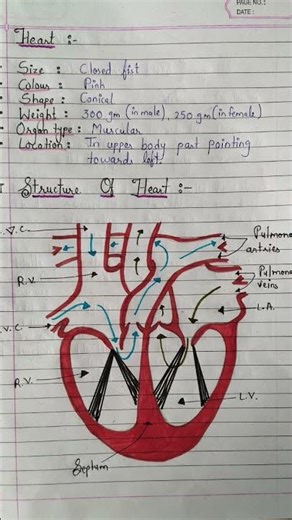 PAGE NO.:
DATE:
Heart :-
Size : Closed fist
Colour : Pink
Shape : Conical
Weight : 300 gm (in male), 250 gm (in female)
Organ type : Muscular
Location : In upper body part pointing
towards left.
Structure Of Heart :-
.V.C.
Pulmona
arteries
R.V.
Pulmona
veins
L.A.
.V.C.
R.V.
L.V.
Septum